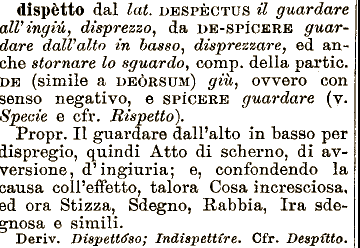 dispètto dal lat. DESPÈCTUS il guardare
all'ingiú, disprezzo, da DE-SPÍCERE guar-
dare dall'alto in basso, disprezzare, ed an-
che stornare lo sguardo, comp. della partic.
DE (simile a DEÒRSUM) giù, ovvero con
senso negativo, e SPÍCERE guardare (v.
Specie e cfr. Rispetto).
Propr. Il guardare dall'alto in basso per
dispregio, quindi Atto di scherno, di av-
versione, d'ingiuria; e, confondendo la
causa coll'effetto, talora Cosa incresciosa,
ed ora Stizza, Sdegno, Rabbia, Ira sde-
gnosa e simili.
Deriv. Dispettóso; Indispettíre. Cfr. Despítto.